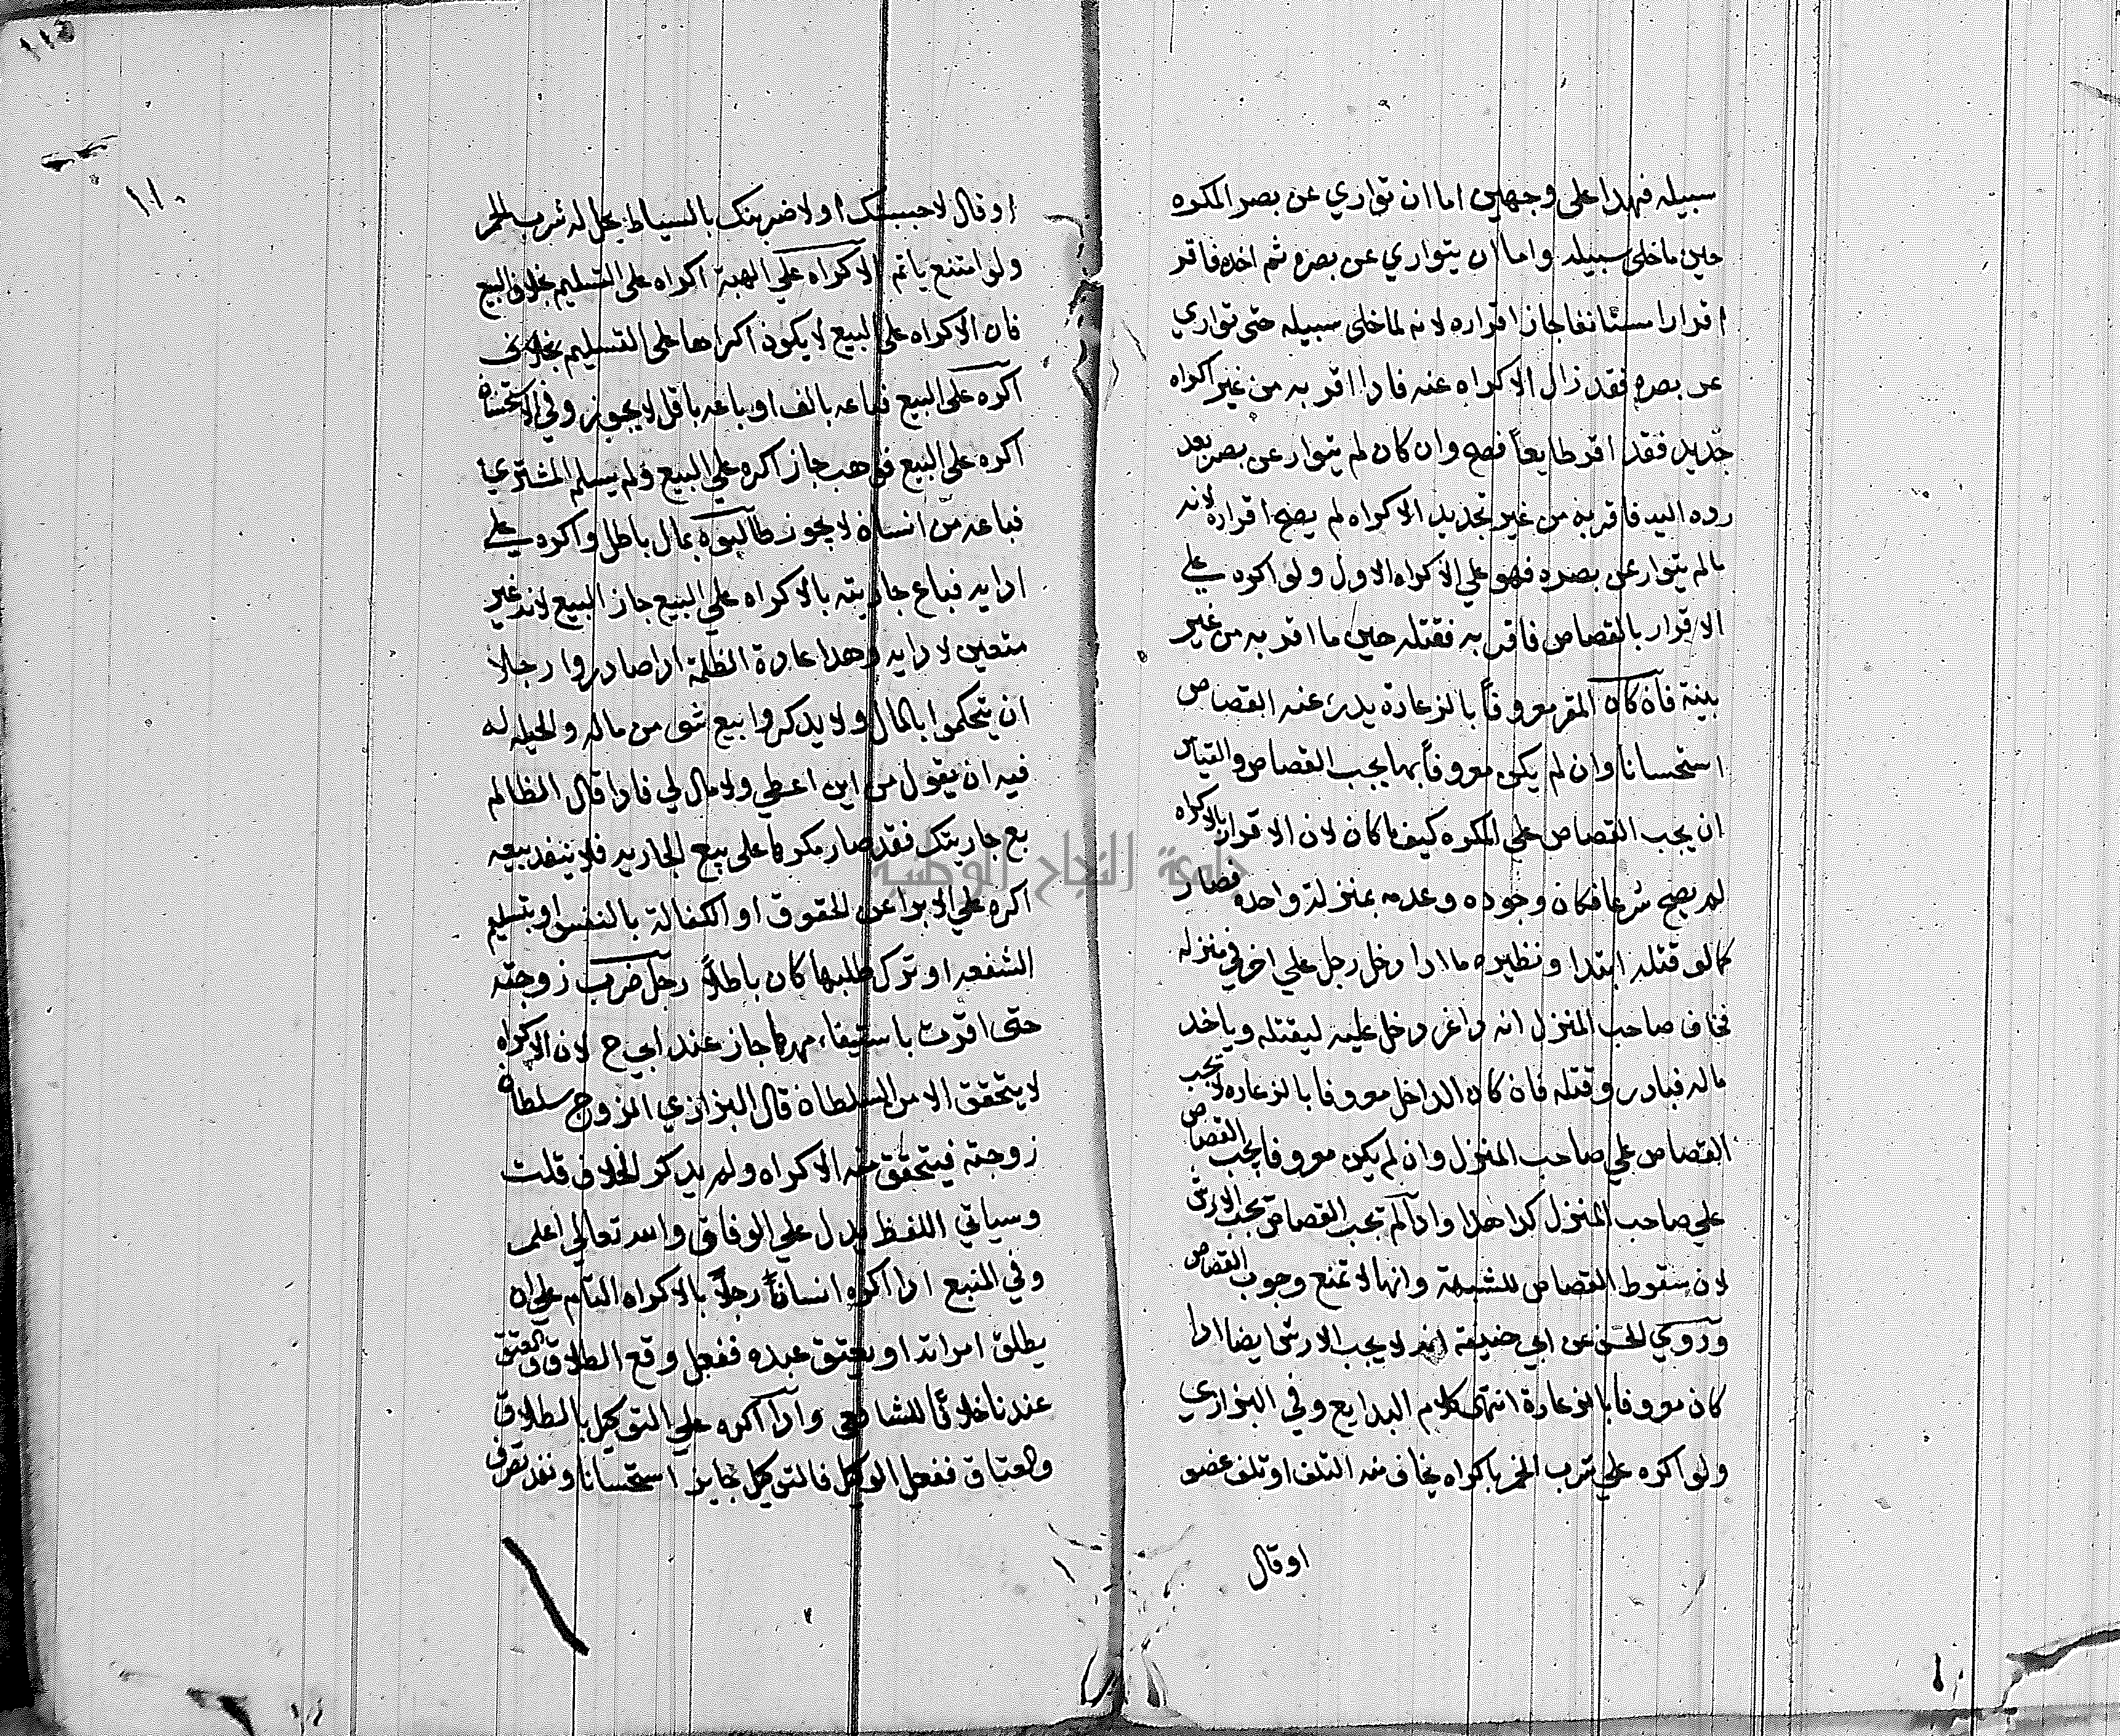 سبيله فهدا على وجهين اما ان تواري عن بصر المكره
حين ما خلى سبيله واما ان يتواري عن بصره ثم اخده فاقر
اقرارا مستانفا جاز اقراره لانه لما خلى سبيله حتى تواري
عن بصره فقد زال الاكراه عنه فادا اقر به من غير اكراه
جديد فقد اقر طايعاً فصح وان كان لم يتوار عن بصره بعد
رده اليه فاقر به من غير تجديد الاكراه لم يصح اقراره لانه
مالم يتوار عن بصره فهو علي الاكراه الاول ولو اكره علي
الاقرار بالقصاص فاقر به فقتله حين ما اقر به من غير
بينة فان كان المقر معروفاً بالزعارة يدرئ عنه القصاص
استحسانا وان لم يكن معروفاً بها يجب القصاص والقياس
ان يجب القصاص علي المكره كيفما كان لان الاقرار بالاكراه
لم يصح شرعا فكان وجوده وعدمه بمنزلة واحدة فصار
كما لو قتله ابتدا ونظيره ما ادا دخل رجل علي اخر في منزله
فخاف صاحب المنزل انه داعر دخل عليه ليقتله وياخد
ماله فبادر وقتله فان كان الداخل معروفا بالزعاره لا يجب
القصاص علي صاحب المنزل وان لم يكن معروفا يجب القصاص
علي صاحب المنزل كدا هدا وادا لم تجب القصاص تجب الارش
لان سقوط القصاص للشبهة وانها لا تمنع وجوب القصاص
وروي الحسن عن ابي حنيفة انه لا يجب الارش ايضا ادا
كان معروفا بالزعارة انتهى كلام البدايع وفي البزازي
ولو اكره علي شرب الخمر باكراه يخاف منه التلف او تلف عضو
او قال
١١٠
او قال لاحبسنك او لاضربنك بالسياط يحل له شرب الخمر
ولو امتنع ياثم الاكراه علي الهبة اكراه على التسليم بخلاف البيع
فان الاكراه على البيع لا يكون اكراها على التسليم بخلاف
اكره على البيع فباعه بالف او باعه باقل لا يجوز وفي الاستحسان
اكره على البيع فوهب جاز اكره علي البيع ولم يسلم المشتري
فباعه من انسان لا يجوز طالبوه بمال باطل واكره علي
ادايه فباع جاريته بالاكراه علي البيع جاز البيع لانه غير
متعين لادايه وهدا عادة الظلمة ادا صادروا رجلا
ان يتحكموا بالمال ولا يدكروا بيع شى من ماله والحيله له
فيه ان يقول من اين اعطي ولا مال لي فادا قال الظالم
بع جاريتك فقد صار مكرها على بيع الجاريه فلا ينفد بيعه
اكره علي الابرا عن الحقوق او الكفالة بالنفس او بتسليم
الشفعه او ترك طلبها كان باطلاً رجل ضرب زوجته
حتى اقرت باستيفاء مهرها جاز عند ابي ح لان الاكراه
لا يتحقق الا من السلطان قال البزازي الزوج سلطان
زوجته فيتحقق منه الاكراه ولم يدكر الخلاف قلت
وسياتي اللفظ يدل علي الوفاق والله تعالي اعلم
وفي المنبع ادا اكره انساناً رجلاً بالاكراه التام علي ان
يطلق امراته او يعتق عبده ففعل وقع الطلاق والعتق
عندنا خلافا للشافعي وادا اكره علي التوكيل بالطلاق
والعتاق ففعل الوكيل فالتوكيل جايز استحسانا ونفد تصرف